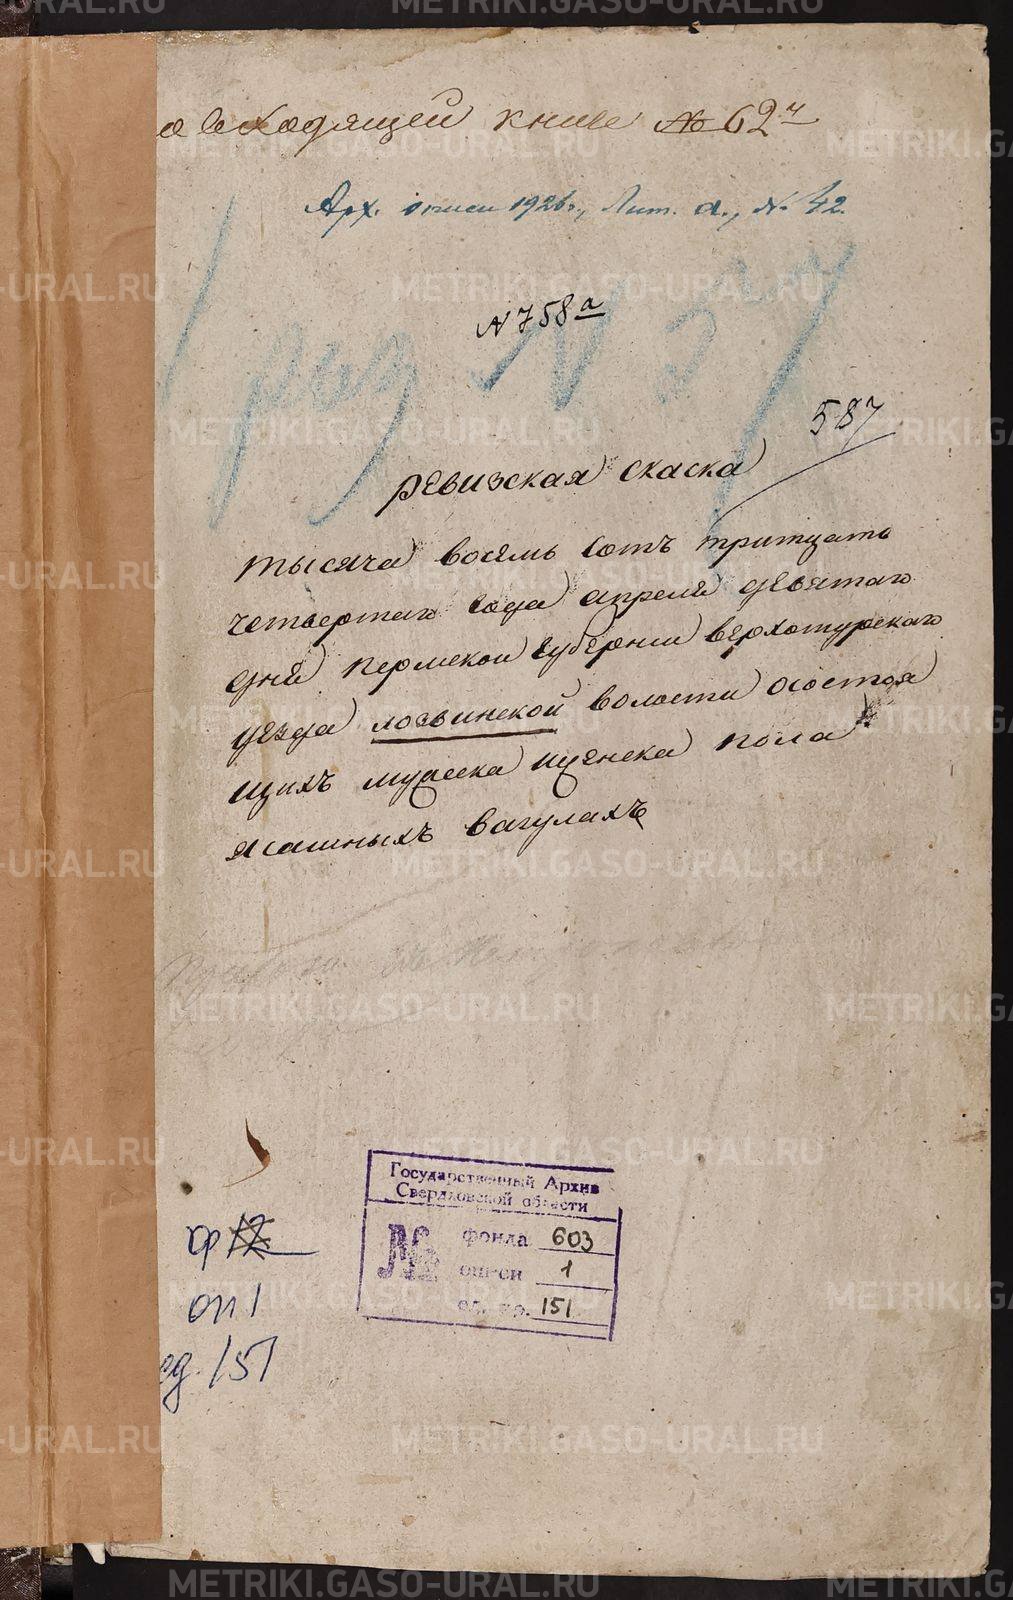 входящей книге № 62ч
Арх. описи 1926г., Лит. а., № 42.
№758а
раз №
587
ревизская скаска
тысяча восемь сотъ тритцать
четвертаго года апреля девятаго
дня пермской губернии верхотурскаго
уезда лозвинской волости осостоя
щихъ мужеска иженска пола
ясашныхъ вагулахъ
Государственный Архив
Свердловской области
№ фонда 603
описи 1
ед. хр. 151
ф 12
оп 1
ед. 151
METRIKI.GASO-URAL.RU